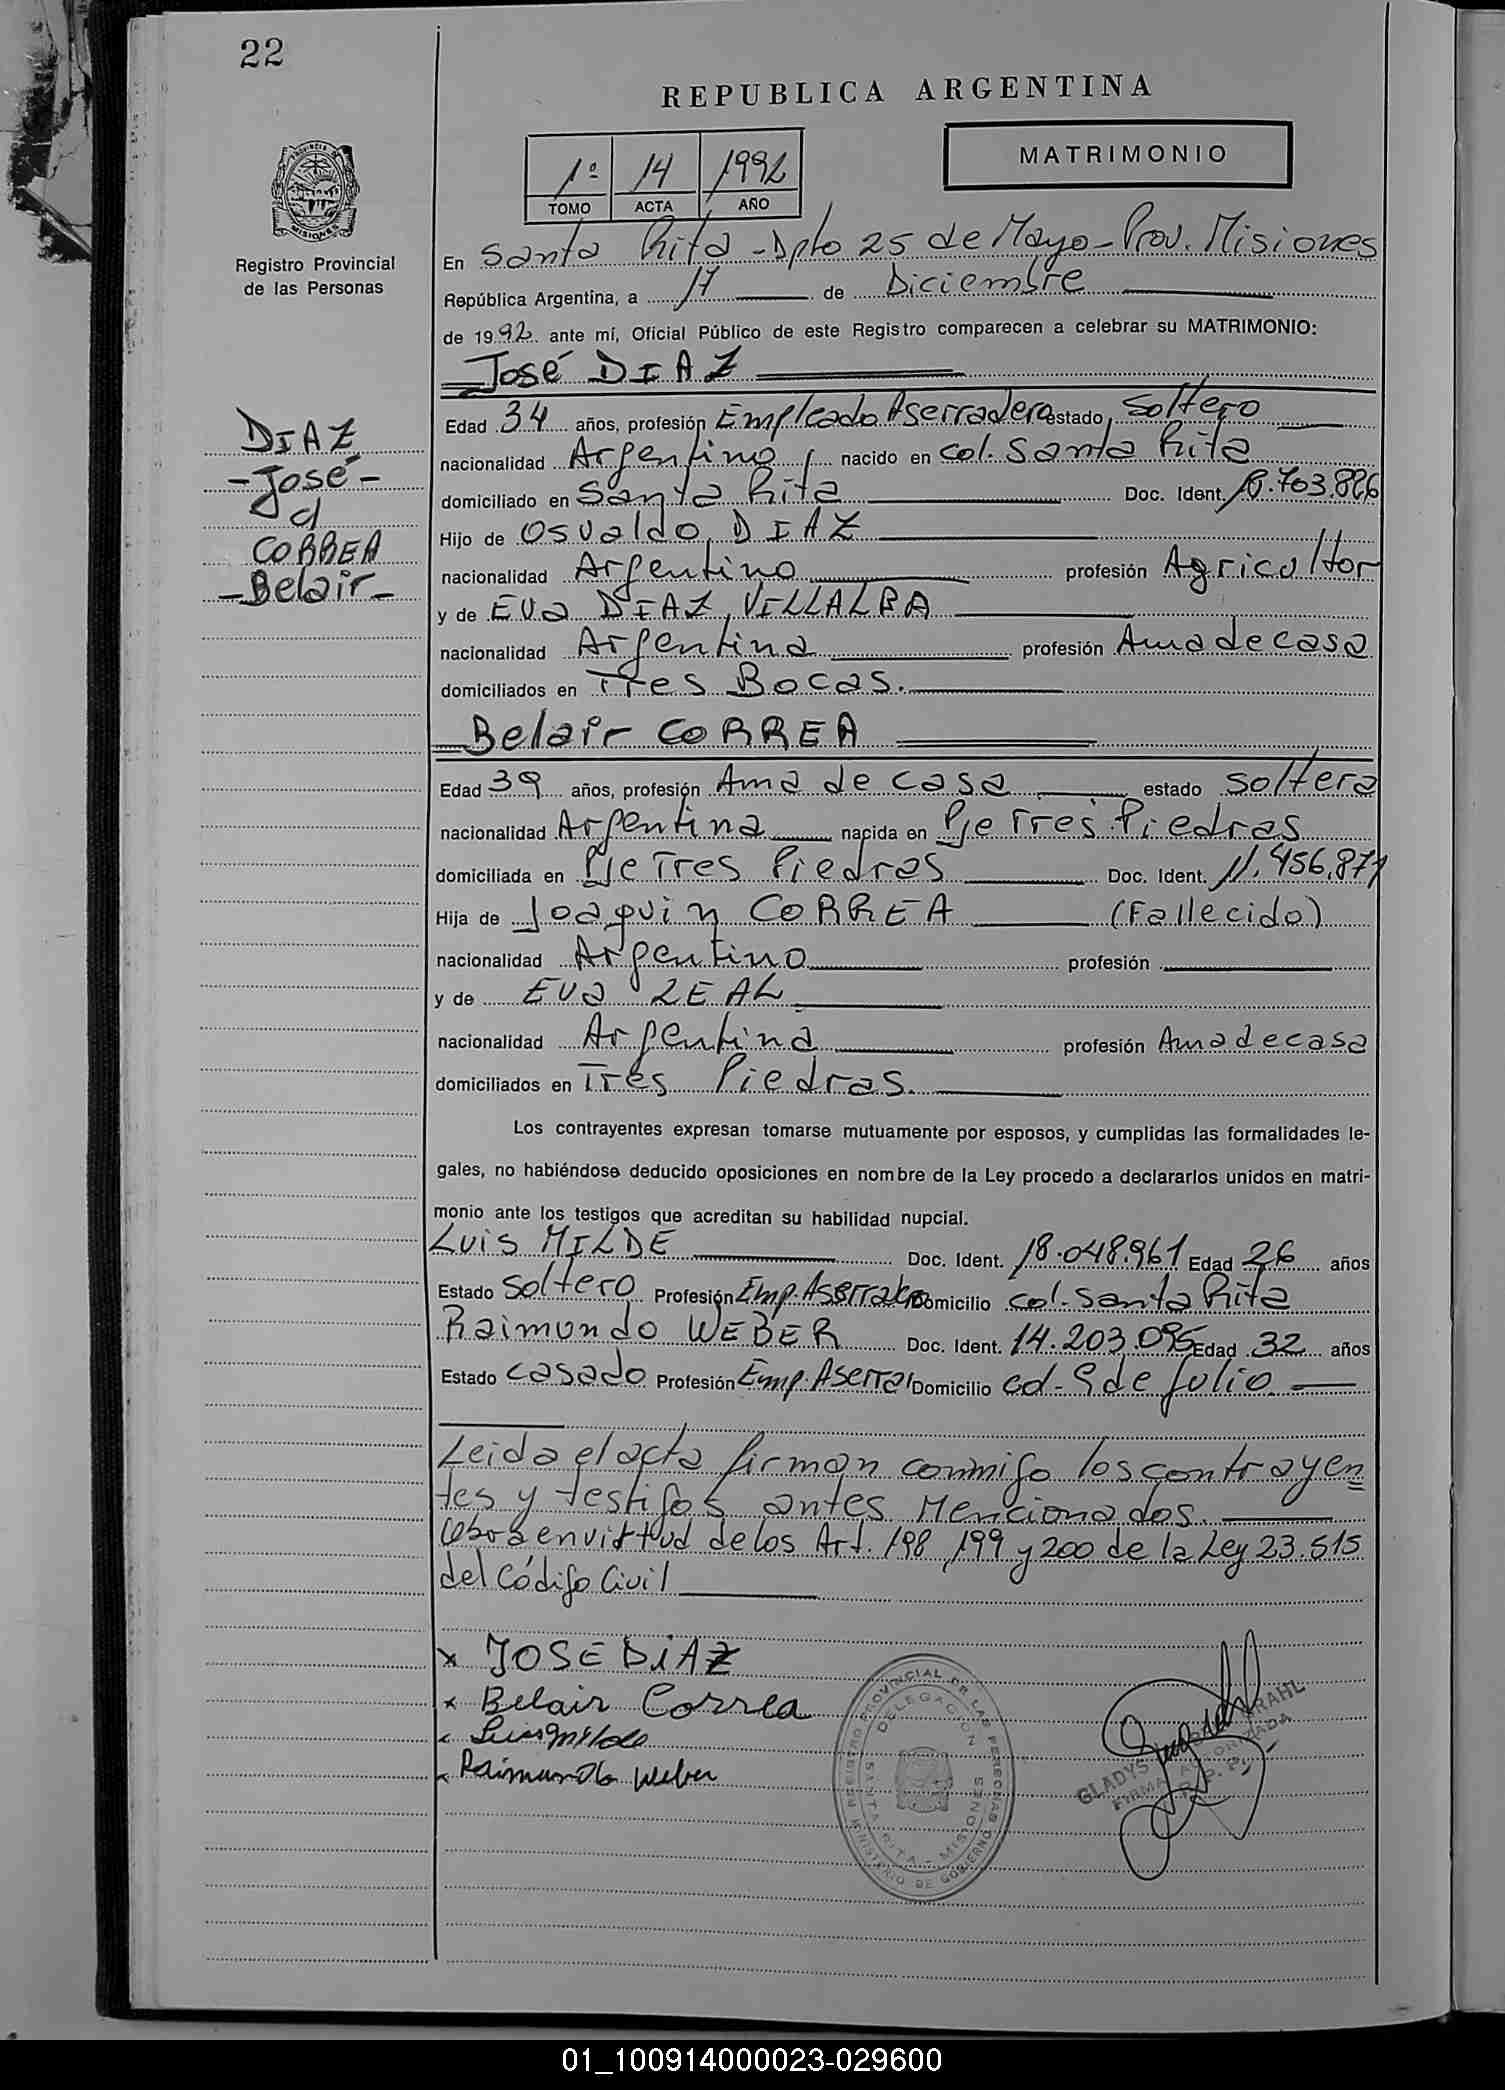 22
REPUBLICA ARGENTINA
MATRIMONIO
1º 14 1992
TOMO ACTA AÑO
PROVINCIA DE MISIONES
Registro Provincial
de las Personas
En Santa Rita - Dpto 25 de Mayo - Prov. Misiones
República Argentina, a 17 de Diciembre
de 1992 ante mí, Oficial Público de este Registro comparecen a celebrar su MATRIMONIO:
José DIAZ
DIAZ
- José -
c/
CORREA
- Belair -
Edad 34 años, profesión Empleado Aserradero estado Soltero
nacionalidad Argentino nacido en col. Santa Rita
domiciliado en Santa Rita Doc. Ident. 18.703.826
Hijo de Osvaldo DIAZ
nacionalidad Argentino profesión Agricultor
y de Eva DIAZ VILLALBA
nacionalidad Argentina profesión Ama de casa
domiciliados en Tres Bocas.
Belair CORREA
Edad 39 años, profesión Ama de casa estado soltera
nacionalidad Argentina nacida en Pje Tres Piedras
domiciliada en Pje Tres Piedras Doc. Ident. 11.456.871
Hija de Joaquin CORREA (Fallecido)
nacionalidad Argentino profesión
y de Eva LEAL
nacionalidad Argentina profesión Ama de casa
domiciliados en Tres Piedras.
Los contrayentes expresan tomarse mutuamente por esposos, y cumplidas las formalidades le-
gales, no habiéndose deducido oposiciones en nombre de la Ley procedo a declararlos unidos en matri-
monio ante los testigos que acreditan su habilidad nupcial.
Luis MILDE Doc. Ident. 18.048.961 Edad 26 años
Estado Soltero Profesión Emp. Domicilio col. Santa Rita
Raimundo WEBER Doc. Ident. 14.203.095 Edad 32 años
Estado casado Profesión Emp. Aserra Domicilio col. 9 de Julio
Leida el acta firman conmigo los contrayen=
tes y testigos antes Mencionados
en virtud de los Art. 198, 199 y 200 de la Ley 23.515
del Código Civil
x JOSE DIAZ
x Belair Correa
x Luis Milde
x Raimundo Weber
REGISTRO PROVINCIAL DE LAS PERSONAS
DELEGACION
SANTA RITA - MISIONES
MINISTERIO DE GOBIERNO
GLADYS GRAHL
FIRMA AUTORIZADA
R. P. P.
01_100914000023-029600